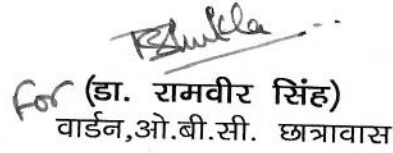 RShukla
For (डा. रामवीर सिंह)
वार्डन,ओ.बी.सी. छात्रावास